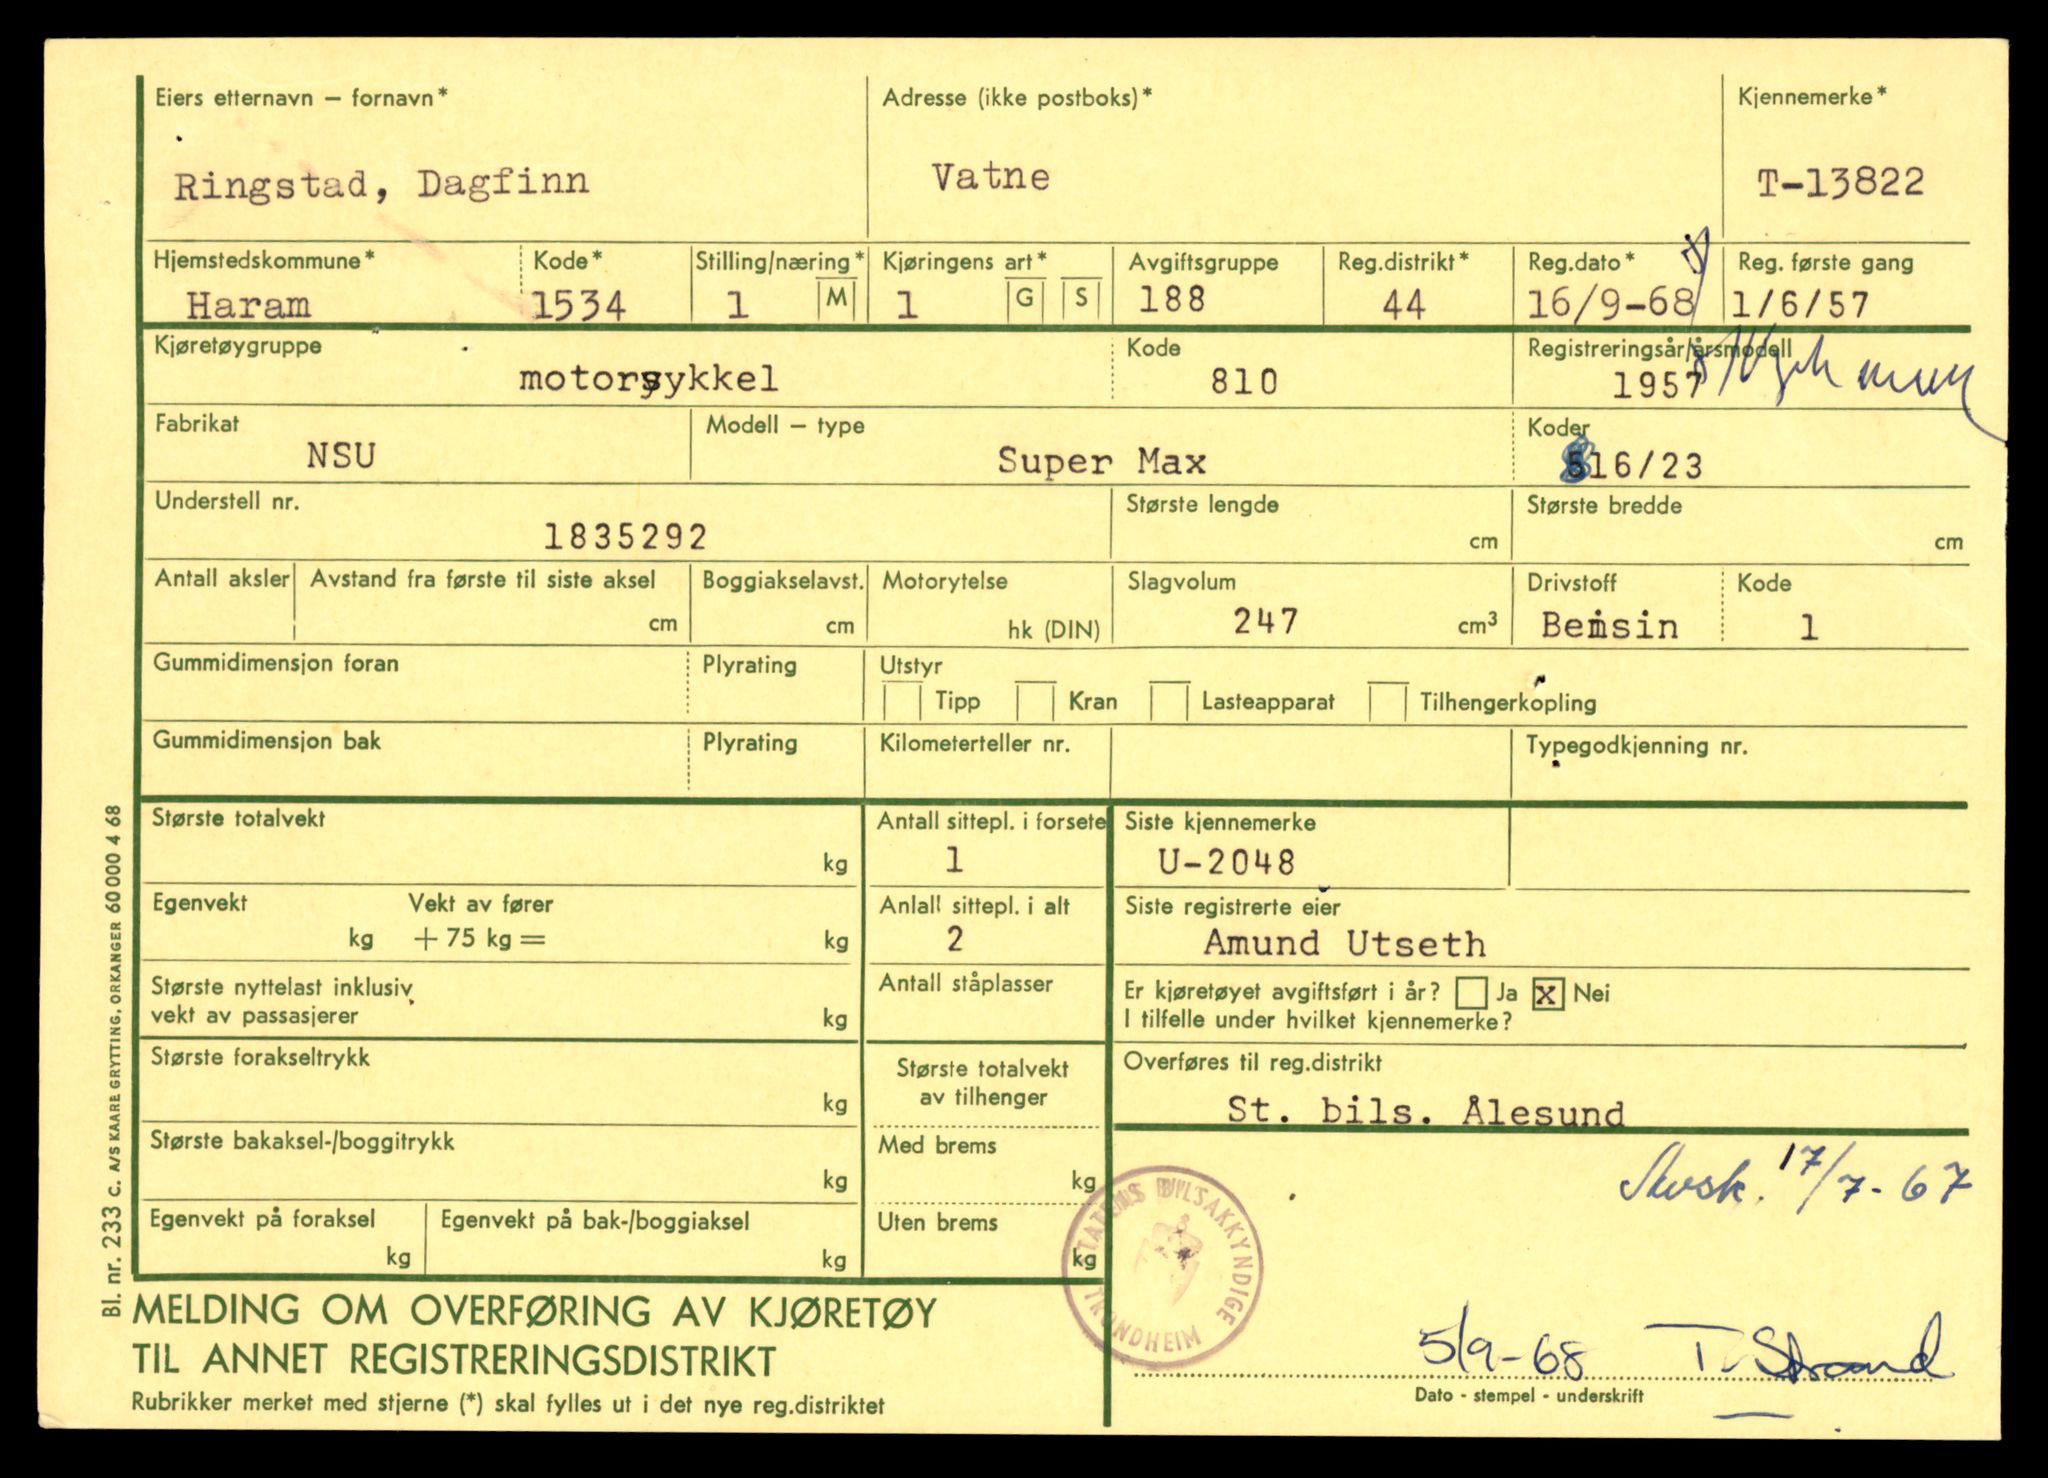 Eiers etternavn – fornavn* Adresse (ikke postboks)* Kjennemerke*
Ringstad, Dagfinn Vatne T-13822
Hjemstedskommune* Kode* Stilling/næring* Kjøringens art* Avgiftsgruppe Reg.distrikt* Reg.dato* Reg. første gang
Haram 1534 1 M 1 G S 188 44 16/9-68 1/6/57
Kjøretøygruppe Kode Registreringsår/årsmodell
motorsykkel 810 1957
Fabrikat Modell – type Koder
NSU Super Max 816/23
Understell nr. Største lengde Største bredde
1835292 cm cm
Antall aksler Avstand fra første til siste aksel Boggiakselavst. Motorytelse Slagvolum Drivstoff Kode
cm cm hk (DIN) 247 cm³ Bensin 1
Gummidimensjon foran Plyrating Utstyr
Tipp Kran Lasteapparat Tilhengerkopling
Gummidimensjon bak Plyrating Kilometerteller nr. Typegodkjenning nr.
Største totalvekt Antall sittepl. i forsete Siste kjennemerke
kg 1 U-2048
Egenvekt Vekt av fører Anlall sittepl. i alt Siste registrerte eier
kg + 75 kg = kg 2 Amund Utseth
Største nyttelast inklusiv Antall ståplasser Er kjøretøyet avgiftsført i år? Ja x Nei
vekt av passasjerer kg I tilfelle under hvilket kjennemerke?
Største forakseltrykk Største totalvekt Overføres til reg.distrikt
kg av tilhenger St. bils. Ålesund
Største bakaksel-/boggitrykk Med brems
kg kg Avsk. 17/7-67
Egenvekt på foraksel Egenvekt på bak-/boggiaksel Uten brems
kg kg kg
STATENS BILSAKKYNDIGE TRONDHEIM
MELDING OM OVERFØRING AV KJØRETØY
TIL ANNET REGISTRERINGSDISTRIKT
5/9-68 T. Strand
Rubrikker merket med stjerne (*) skal fylles ut i det nye reg.distriktet Dato - stempel - underskrift
Bl. nr. 233 C. A/S KAARE GRYTTING, ORKANGER 60 000 4 68